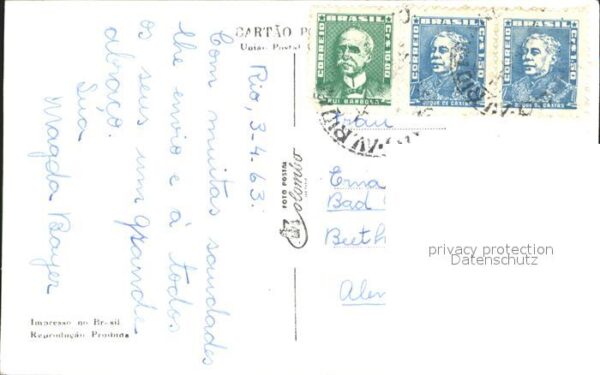 CARTÃO PO
União Postal
Rio, 3-4-63.
Com muitas saudades
lhe envio e à todos
os seus um grande
abraço.
Sua
Magda Bayer
Impresso no Brasil
Reprodução Proibida
FOTO POSTAL
Colombo
CORREIO
BRASIL
CR$ 10,00
RUI BARBOSA
CORREIO
BRASIL
CR$ 1,50
DUQUE DE CAXIAS
CORREIO
BRASIL
CR$ 1,50
DUQUE DE CAXIAS
Frau
Erna
Bad
Beeth
Alem
privacy protection
Datenschutz